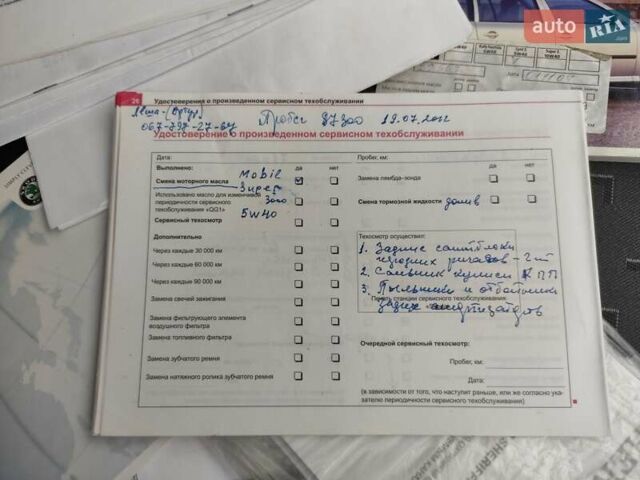 auto RIA.com
26 Удостоверения о произведенном сервисном техобслуживании
Лёша-(Артур)
067-797-27-64
Пробег 87300 19.07.2012
Удостоверение о произведенном сервисном техобслуживании
Дата:
Выполнено: да нет
Смена моторного масла
Mobil
Super
3000
5W40
Использовано масло для изменчивой
периодичности сервисного
техобслуживания «QG1»
Сервисный техосмотр
Дополнительно
Через каждые 30 000 км
Через каждые 60 000 км
Через каждые 90 000 км
Замена свечей зажигания
Замена фильтрующего элемента
воздушного фильтра
Замена топливного фильтра
Замена зубчатого ремня
Замена натяжного ролика зубчатого ремня
Пробег, км:
да нет
Замена лямбда-зонда
Смена тормозной жидкости долив
Техосмотр осуществил:
1. Задние сайлблоки
передних рычагов - 2шт
2. Сальник кулисы КПП
3. Пыльники и отбойники
Печать станции сервисного техобслуживания:
задних амортизаторов
Очередной сервисный техосмотр:
Пробег, км:
Дата:
(в зависимости от того, что наступит раньше, или же согласно ука-
зателю периодичности сервисного техобслуживания)